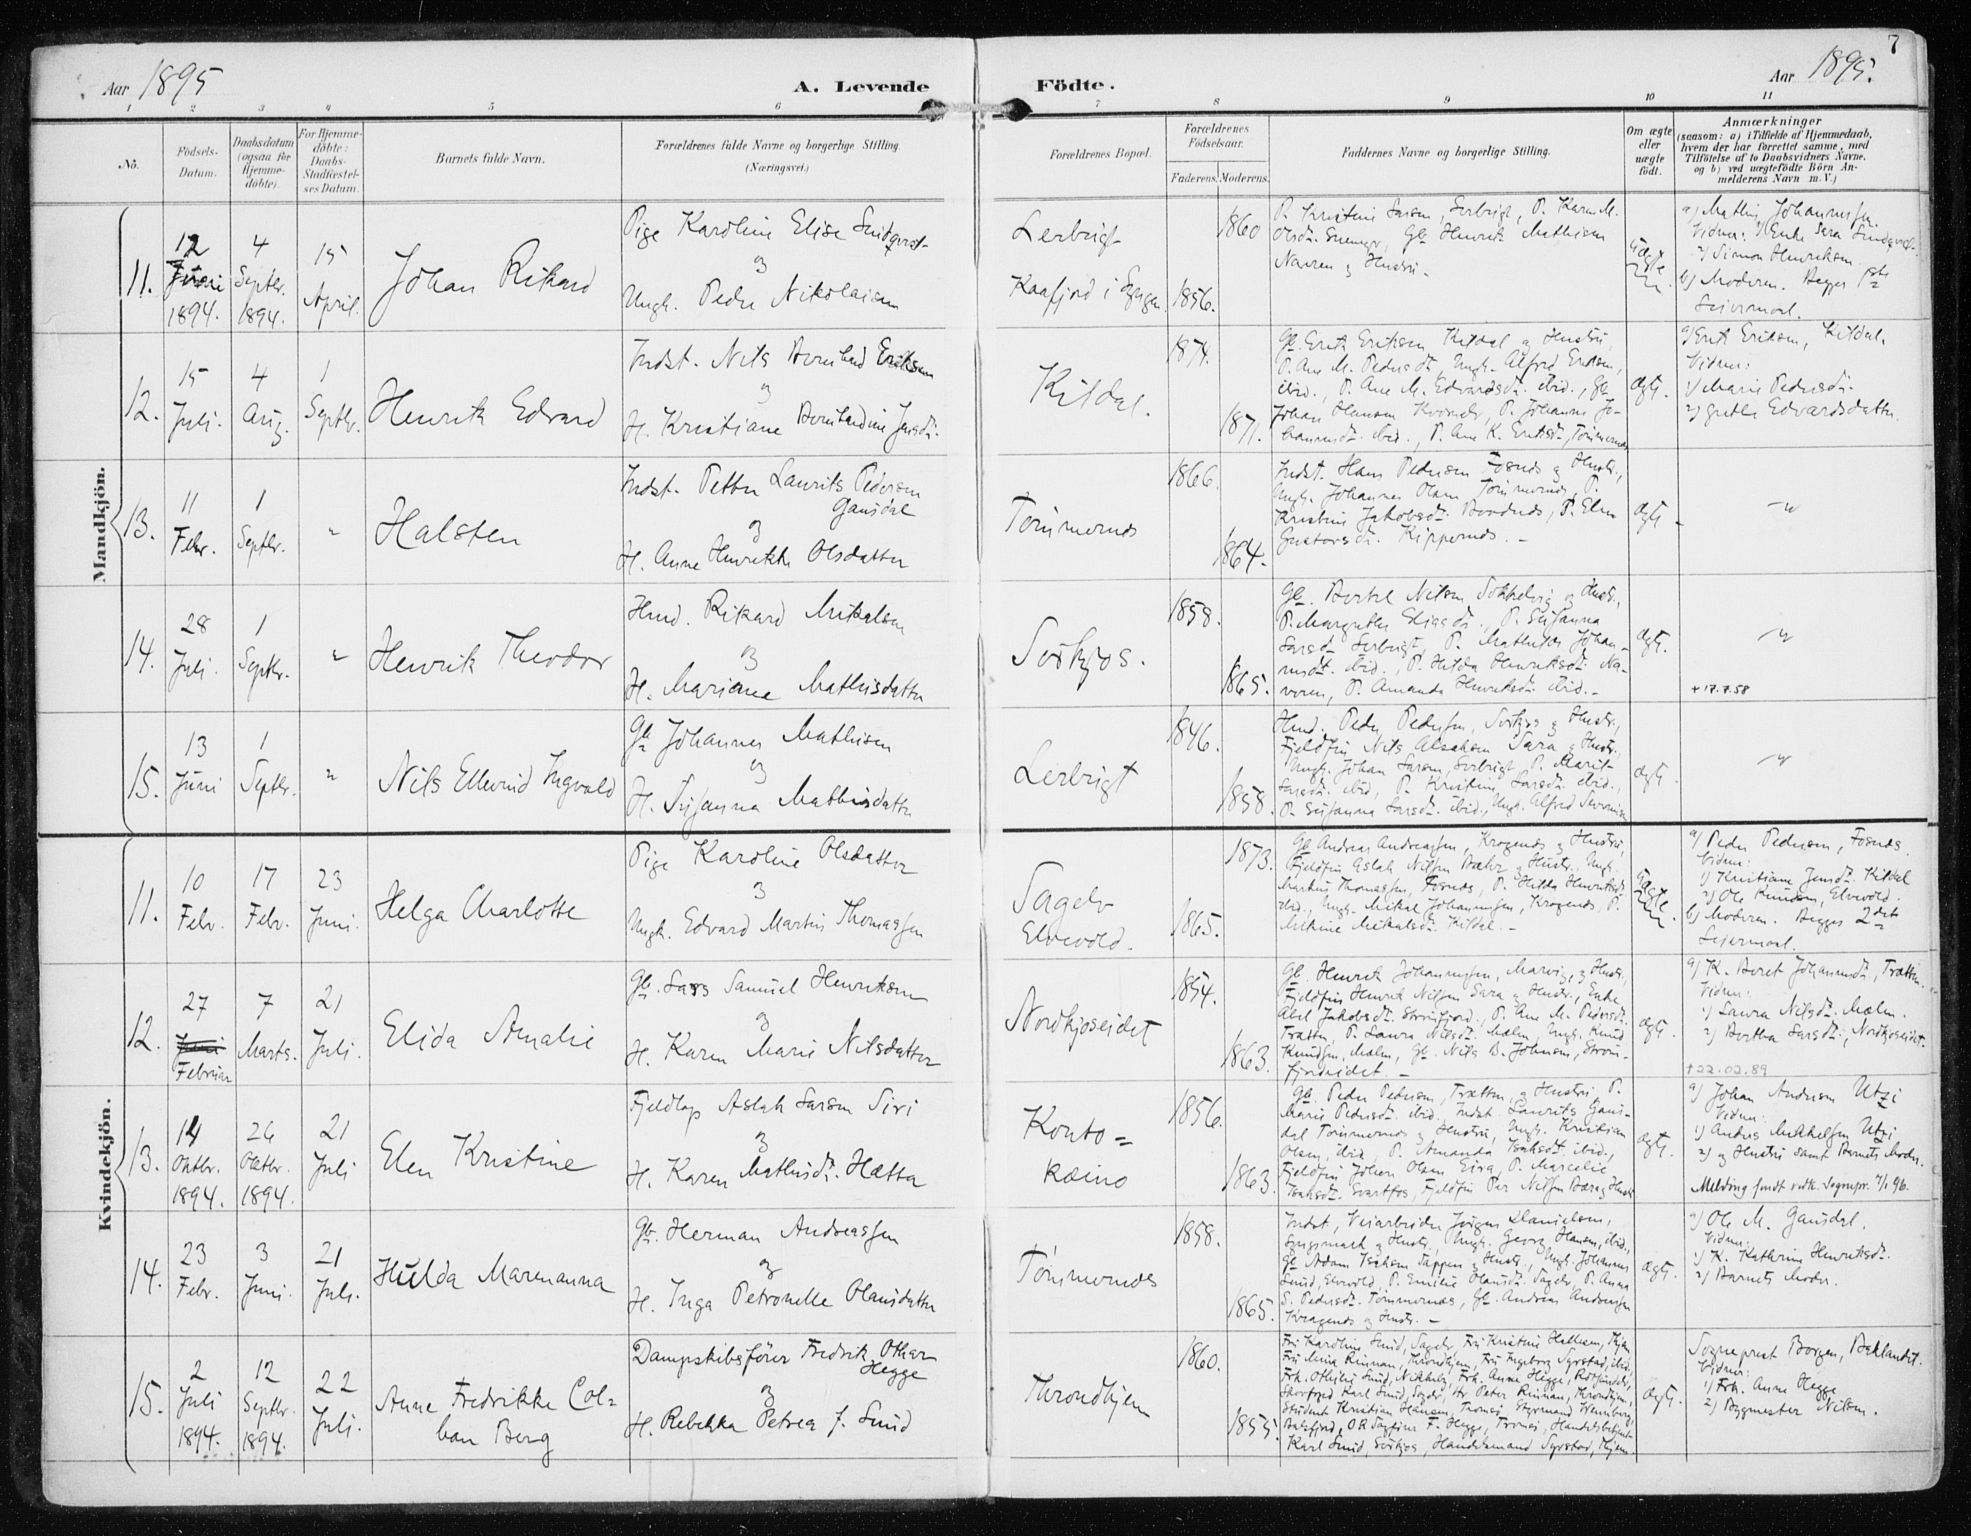 7
Aar 1895
A. Levende
Födte.
Aar 1895.
1 2 3 4 5 6 7 8 9 10 11
No.
Födsels-Datum.
Daabsdatum (ogsaa for Hjemme-döbte).
For Hjemme-döbte: Daabs-Stadfæstel-ses Datum.
Barnets fulde Navn.
Forældrenes fulde Navne og borgerlige Stilling. (Næringsvei.)
Forældrenes Bopæl.
Forældrenes Födselsaar.
Faderens. Moderens.
Faddernes Navne og borgerlige Stilling.
Om ægte eller uægte födt.
Anmærkninger
(saasom: a) i Tilfælde af Hjemmedaab, hvem der har forrettet samme, med Tilföielse af to Daabsvidners Navne. og b) ved uægtefödte Börn An-melderens Navn m. V.)
Mandkjön.
11.
12 Juni 1894.
4 Septbr. 1894.
15 April.
Johan Rikard
Pige Karoline Elise Lindqvist
og
Ungk. Peder Nikolaisen
Lerbugt
Kaafjord i Lyngen.
1860
1856.
Uægte
a) Mathis Johannessen.
Vidner: 1) Enke Sara Lindqvist
2) Simon Henriksen.
b) Moderen. Begges 1ste
Leiermaal.
12.
15 Juli.
4 Aug.
1 Septbr.
Henrik Edvard
Indst. Nils Bernhard Eriksen
og
H. Kristiane Bernhardine Jensdr.
Kitdal.
1874.
1871.
Gb. Erik Eriksen Kitdal og Hustru,
P. Ane M. Pedersdr., Ungk. Alfred Eriksen,
ibid., P. Ane M. Edvardsdr. ibid., Gb.
Johan Hansen
ægte.
a) Erik Eriksen, Kitdal.
Vidner:
1) Marie Pedersdr.
2) Grethe Edvardsdatter.
13.
11 Febr.
1 Septbr.
"
Halsten
Indst. Petter Laurits Pedersen
Gausdal
og
H. Anne Henrikke Olsdatter
Tømmernes
1866.
1864.
Indst. Hans Pedersen Fosnes og Hustr.,
Ungk. Johannes Olsen Tømmernes, P.
Kristine Jakobsdr. Bordnes, P. Elen
Gustavsdr. Kippernes. -
ægte
"
14.
28 Juli.
1 Septbr.
"
Henrik Theodor
Hmd. Rikard Mikalsen
og
H. Mariane Mathisdatter
Sørkjos.
1858.
1865.
Gb. Bertel Nilsen Sokkelvig og Hustr.,
P. Margrethe Eliasdr., P. Susanna
Larsdr. Lerbugt, P. Mathilde Johan-
nesdr. ibid., P. Hilda Henriksdr. Na-
veren, P. Amanda Henriksdr. ibid. -
ægte.
"
+ 17.7.58
15.
13 Juni
1 Septbr.
"
Nils Ellevind Ingvald
Gb Johannes Mathisen
og
H. Susanna Mathisdatter
Lerbugt
1846.
1858.
Hmd. Peder Pedersen, Sørkjos og Hustr.,
Fjeldfin Nils Abraham Sara og Hustr.,
Ungk. Johan Larsen, Lerbugt, P. Marit
Larsdr. ibid., P. Kristine Larsdr. ibid.,
P. Susanna Larsdr. ibid., Ungk. Alfred
ægte
"
Kvindekjön.
11.
10 Febr.
17 Febr.
23 Juni.
Helga Charlotte
Pige Karoline Olsdatter
og
Ungk. Edvard Martin Thomassen
Sagelv
Elvevold.
1873.
1865.
Gb Andreas Andreassen, Kragenes og Hustru,
Fjeldfin Aslak Nilsen Bæhr og Hustr., Ungk.
Markus Thomassen, Fosnes, P. Hilda Henriksdr.
ibid., Ungk. Mikal Johannessen, Kragenes, P.
Mikine Mikalsdr. Kitdal. -
Uægte
a) Peder Pedersen, Fosnes.
Vidner:
1) Kristiane Jensdr. Kitdal
2) Ole Knudsen, Elvevold.
b) Moderen. Begges 2det
Leiermaal.
12.
27 Februar
7 Marts.
21 Juli.
Elida Amalie
Gb. Lars Samuel Henriksen
og
H. Karen Marie Nilsdatter
Nordkjoseidet
1854.
1863.
Gb. Henrik Johannessen, og Hustr.,
Fjeldfin Henrik Nilsen Sara og Hustr., Enke
Abel Jakobsdr. Storfjord, P. Ane M. Pedersdr.
Trætten, P. Laura Nilsdr. Malm, Ungk. Knud
Knudsen, Malm, Gb. Nils B. Johnsen,
ægte.
a) K. Beret Johannesdr., Trætten.
Vidner:
1) Laura Nilsdr. Malm.
2) Bertha Larsdr., Nordkjoseidet.
+ 22.02.89
13.
14 Oktbr. 1894.
26 Oktbr. 1894.
21 Juli
Elen Kristine
Fjeldlap Aslak Larsen Siri
og
H. Karen Mathisdr. Hætta
Kouto=
kæino
1856.
1863.
Gb. Peder Pedersen, Trætten, og Hustru P.
Marie Pedersdr. ibid., Indst. Laurits Gaus-
dal Tømmernes og Hustru, Ungk. Kristian
Olsen, ibid., P. Amanda Isaksdr. ibid.,
Fjeldfin Johan Olsen Eira, P. Marcelie
Isaksdr. Svartfos, Fjeldfin Per Nilsen
ægte.
a) Johan Andersen Utzi
Vidner:
1) Anders Mikkelsen Utzi
2) og Hustru samt Barnets Moder.
Melding sendt vedk. Sognepr. 7/1 96.
14.
23 Febr.
3 Juni.
21 Juli.
Hulda Marenanna
Gb. Herman Andreassen
og
H. Inga Petronelle Olausdatter
Tømmernes
1858.
1865.
Indst., Veiarbeider Jørgen Danielsen,
og Hustr., Ungk. Georg Hansen, ibid.,
Gb Adam Isaksen og Hustr., Ungk. Johannes
Lund, Elvevold, P. Emilie Olausdr. Sagelv, P. Anna
S. Pedersdr. Tømmernes, Gb. Andreas Andreassen
Kragenes og Hustr. -
ægte.
a) Ole M. Gausdal.
Vidner:
1) K. Kathrine Henriksdr.
2) Barnets Moder.
15.
2 Juli 1894.
12 Septbr. 1894.
22 Juli.
Anne Fredrikke Col=
ban Berg
Dampskibsfører Fredrik Othar
Hegge
og
H. Rebekka Petrea f. Lund
Throndhjem
1860.
1855.
Fru Karoline Lund, Sagelv, Fru Kristine
Fru Mina Rinnan, Throndhjem, Fru Ingeborg Syrstad, ibid.
Frk. Othilie Lund, Frk. Anna Hegge,
Karl Lund, Sagelv, Hr. Peter Rinnan, Throndhjem,
Student Kristian Hansen, Tromsø, Styrmand
F. Hegge, Tromsø,
Karl Lund, Sørkjos, Handelsmand Syrstad,
ægte.
Sogneprest Borgen, Baklandet.
Vidner:
1) Frk. Anne Hegge
2) Bygmester Nilsen.